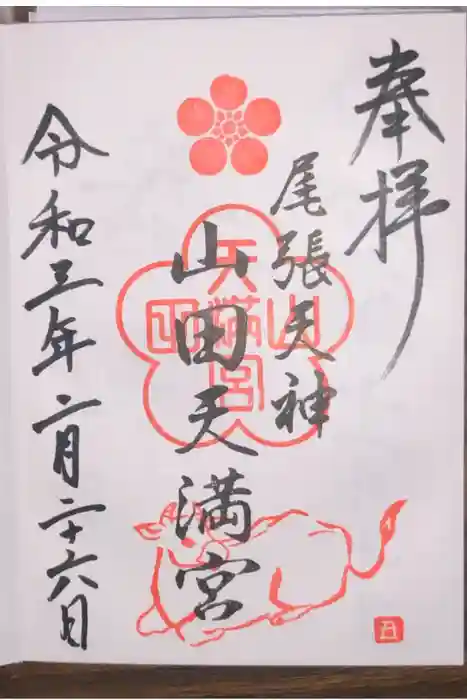 奉拝
尾張天神
山田天満宮
山田天満宮
令和三年二月二十六日